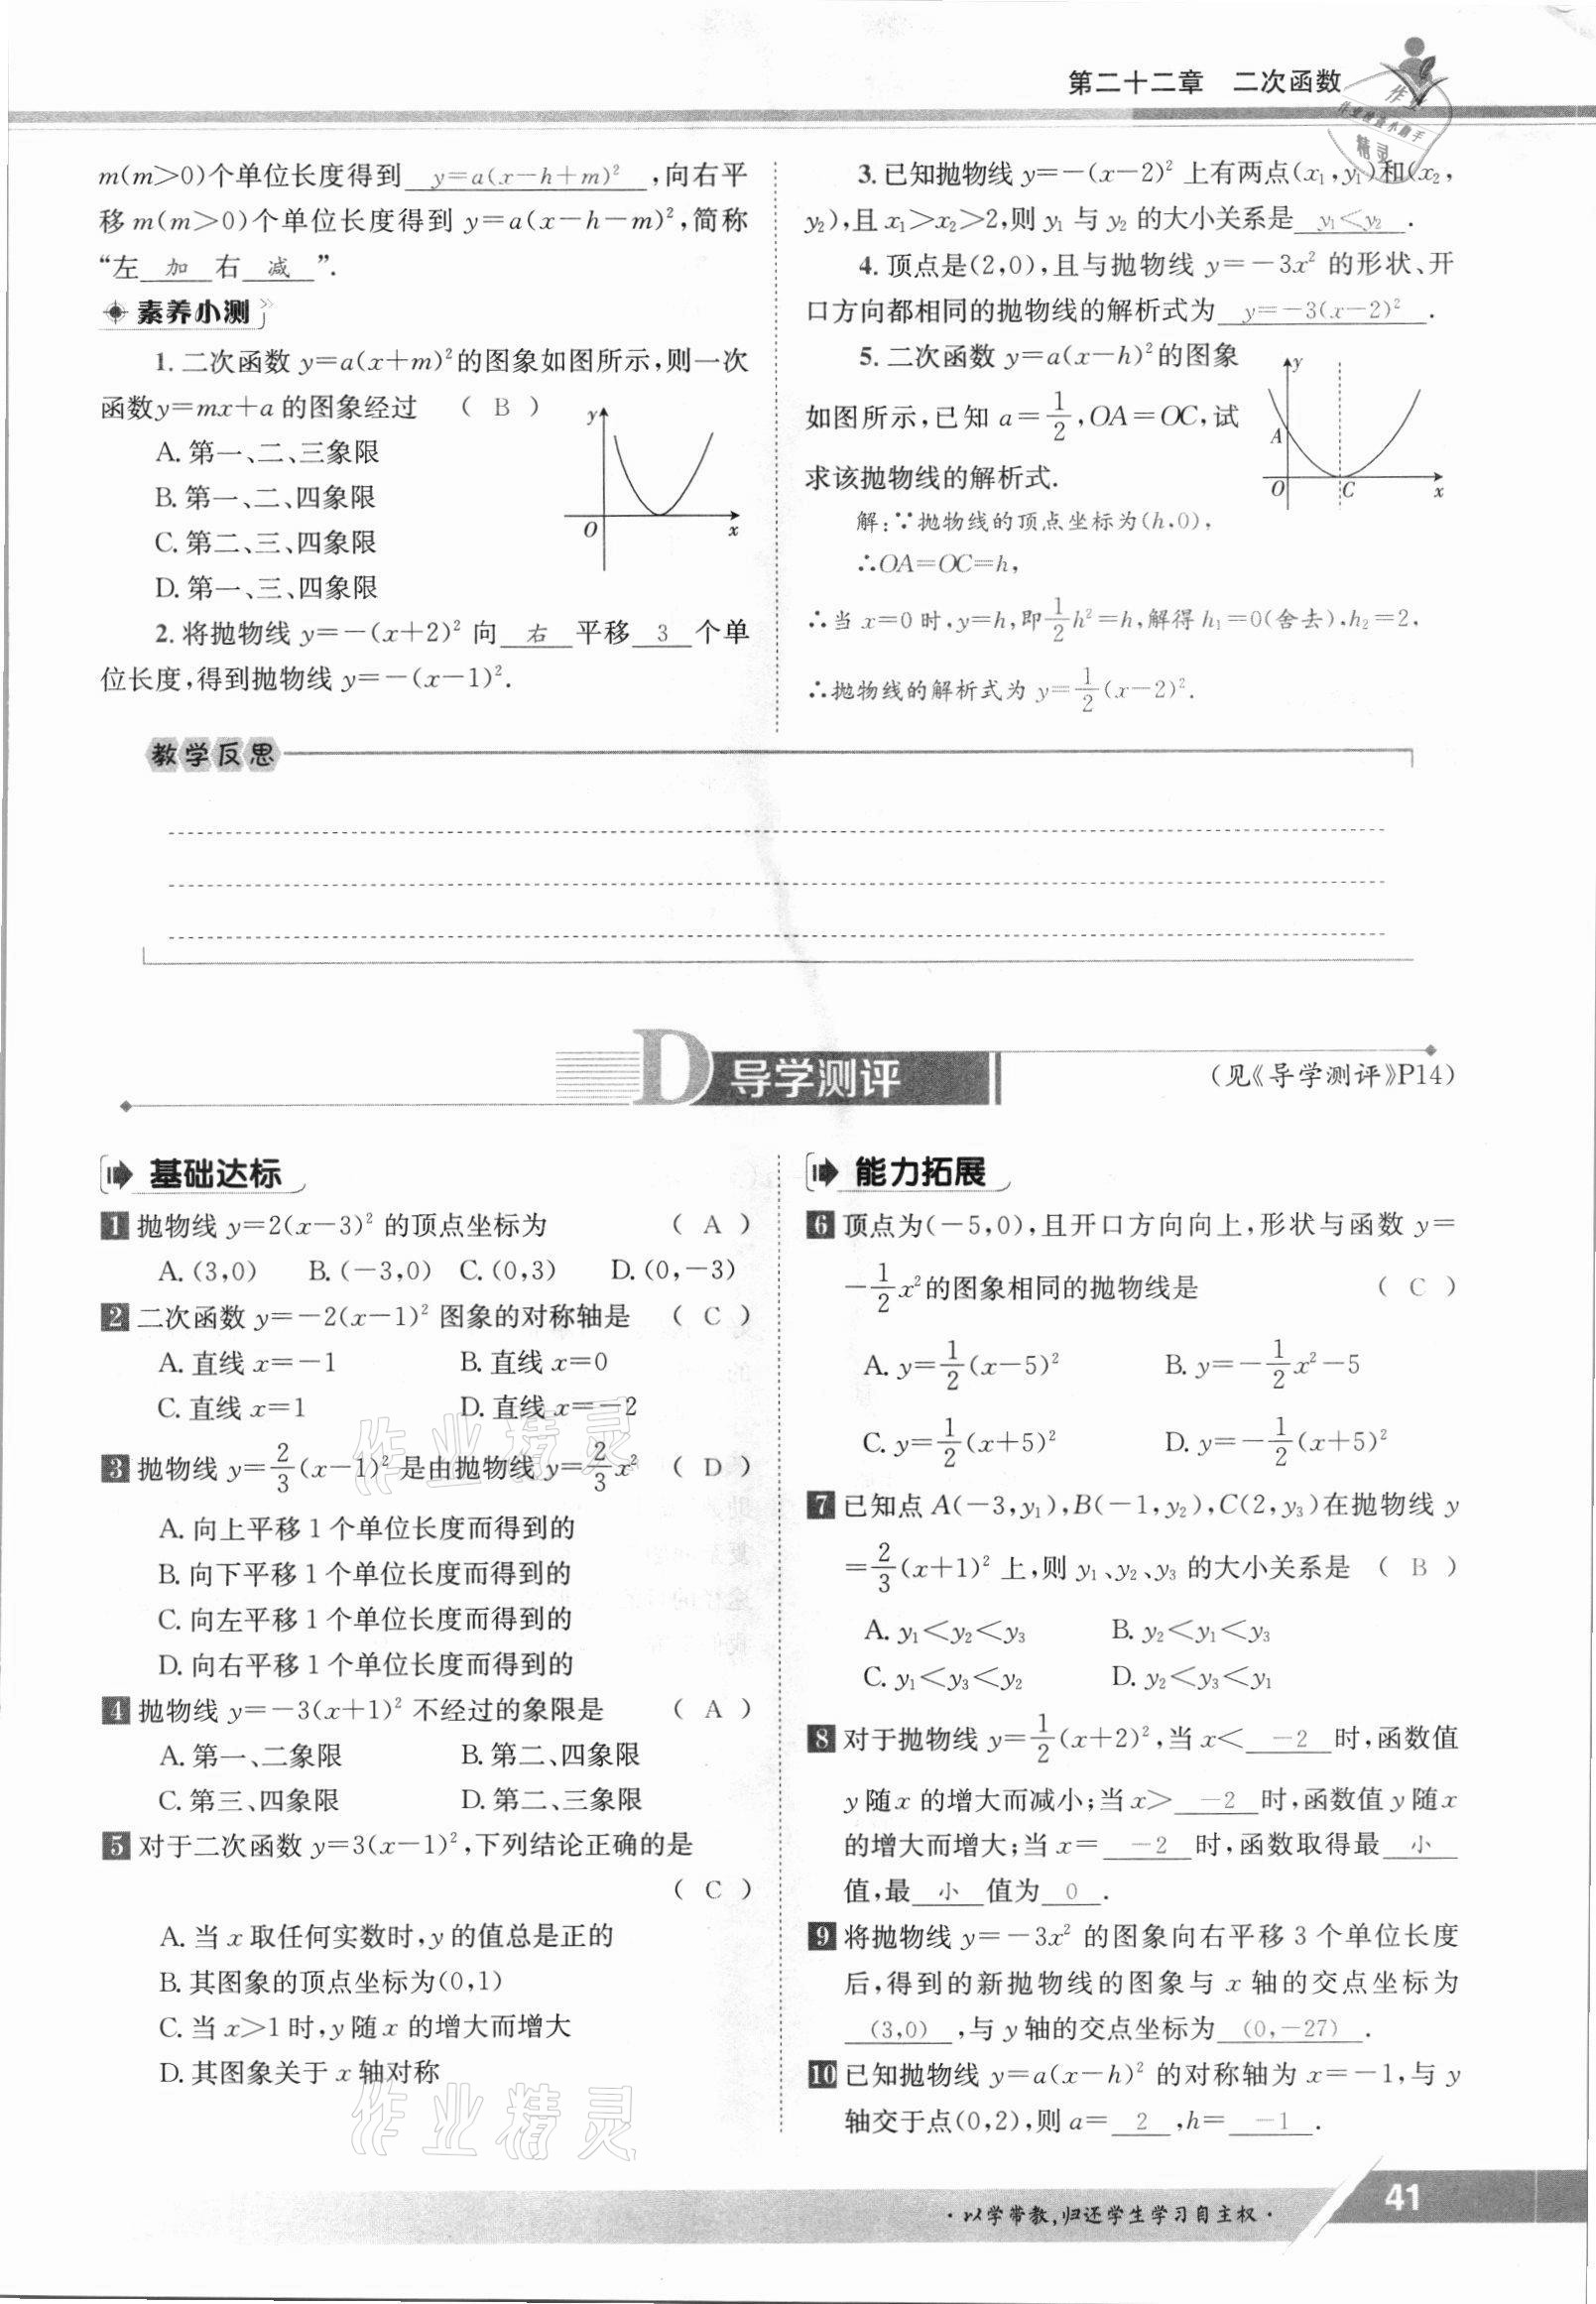 第二十二章 二次函数
m(m>0)个单位长度得到 y=a(x-h+m)² ,向右平
移m(m>0)个单位长度得到 y=a(x-h-m)²,简称
“左 加 右 减 ”.
素养小测
1. 二次函数 y=a(x+m)²的图象如图所示,则一次
函数y=mx+a 的图象经过 ( B )
A. 第一、二、三象限
B. 第一、二、四象限
C. 第二、三、四象限
D. 第一、三、四象限
y
O
x
2. 将抛物线 y=-(x+2)² 向 右 平移 3 个单
位长度,得到抛物线 y=-(x-1)².
3. 已知抛物线 y=-(x-2)² 上有两点(x₁,y₁)和(x₂,
y₂),且 x₁>x₂>2,则 y₁ 与 y₂ 的大小关系是 y₁<y₂ .
4. 顶点是(2,0),且与抛物线 y=-3x² 的形状、开
口方向都相同的抛物线的解析式为 y=-3(x-2)² .
5. 二次函数 y=a(x-h)²的图象
如图所示,已知 a=1/2,OA=OC,试
求该抛物线的解析式.
y
A
O
C
x
解:∵抛物线的顶点坐标为(h,0),
∴OA=OC=h,
∴当 x=0 时,y=h,即1/2h²=h,解得 h₁=0(舍去),h₂=2,
∴抛物线的解析式为 y=1/2(x-2)².
教学反思
D 导学测评
(见《导学测评》P14)
基础达标
1 抛物线 y=2(x-3)² 的顶点坐标为 ( A )
A. (3,0) B. (-3,0) C. (0,3) D. (0,-3)
2 二次函数 y=-2(x-1)² 图象的对称轴是 ( C )
A. 直线 x=-1 B. 直线 x=0
C. 直线 x=1 D. 直线 x=-2
3 抛物线 y=2/3(x-1)² 是由抛物线 y=2/3x² ( D )
A. 向上平移 1 个单位长度而得到的
B. 向下平移 1 个单位长度而得到的
C. 向左平移 1 个单位长度而得到的
D. 向右平移 1 个单位长度而得到的
4 抛物线 y=-3(x+1)² 不经过的象限是 ( A )
A. 第一、二象限 B. 第二、四象限
C. 第三、四象限 D. 第二、三象限
5 对于二次函数 y=3(x-1)²,下列结论正确的是
( C )
A. 当 x 取任何实数时,y 的值总是正的
B. 其图象的顶点坐标为(0,1)
C. 当 x>1 时,y 随 x 的增大而增大
D. 其图象关于 x 轴对称
能力拓展
6 顶点为(-5,0),且开口方向向上,形状与函数 y=
-1/2x²的图象相同的抛物线是 ( C )
A. y=1/2(x-5)² B. y=-1/2x²-5
C. y=1/2(x+5)² D. y=-1/2(x+5)²
7 已知点 A(-3,y₁),B(-1,y₂),C(2,y₃)在抛物线 y
=2/3(x+1)² 上,则 y₁、y₂、y₃ 的大小关系是 ( B )
A. y₁<y₂<y₃ B. y₂<y₁<y₃
C. y₁<y₃<y₂ D. y₂<y₃<y₁
8 对于抛物线 y=1/2(x+2)²,当 x< -2 时,函数值
y 随 x 的增大而减小;当 x> -2 时,函数值 y 随 x
的增大而增大;当 x= -2 时,函数取得最 小
值,最 小 值为 0 .
9 将抛物线 y=-3x² 的图象向右平移 3 个单位长度
后,得到的新抛物线的图象与 x 轴的交点坐标为
(3,0) ,与 y 轴的交点坐标为 (0,-27) .
10 已知抛物线 y=a(x-h)² 的对称轴为 x=-1,与 y
轴交于点(0,2),则 a= 2 ,h= -1 .
作业精灵
作业精灵
·以学带教,归还学生学习自主权·
41